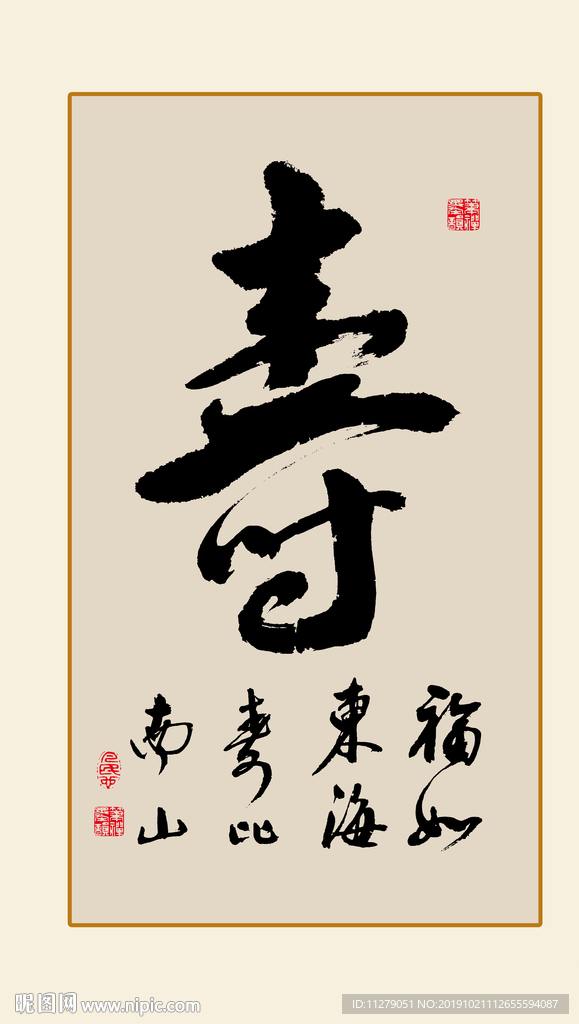 壽
福如
東海
壽比
南山
昵图网 www.nipic.com
ID:11279051 NO:20191021112655594087